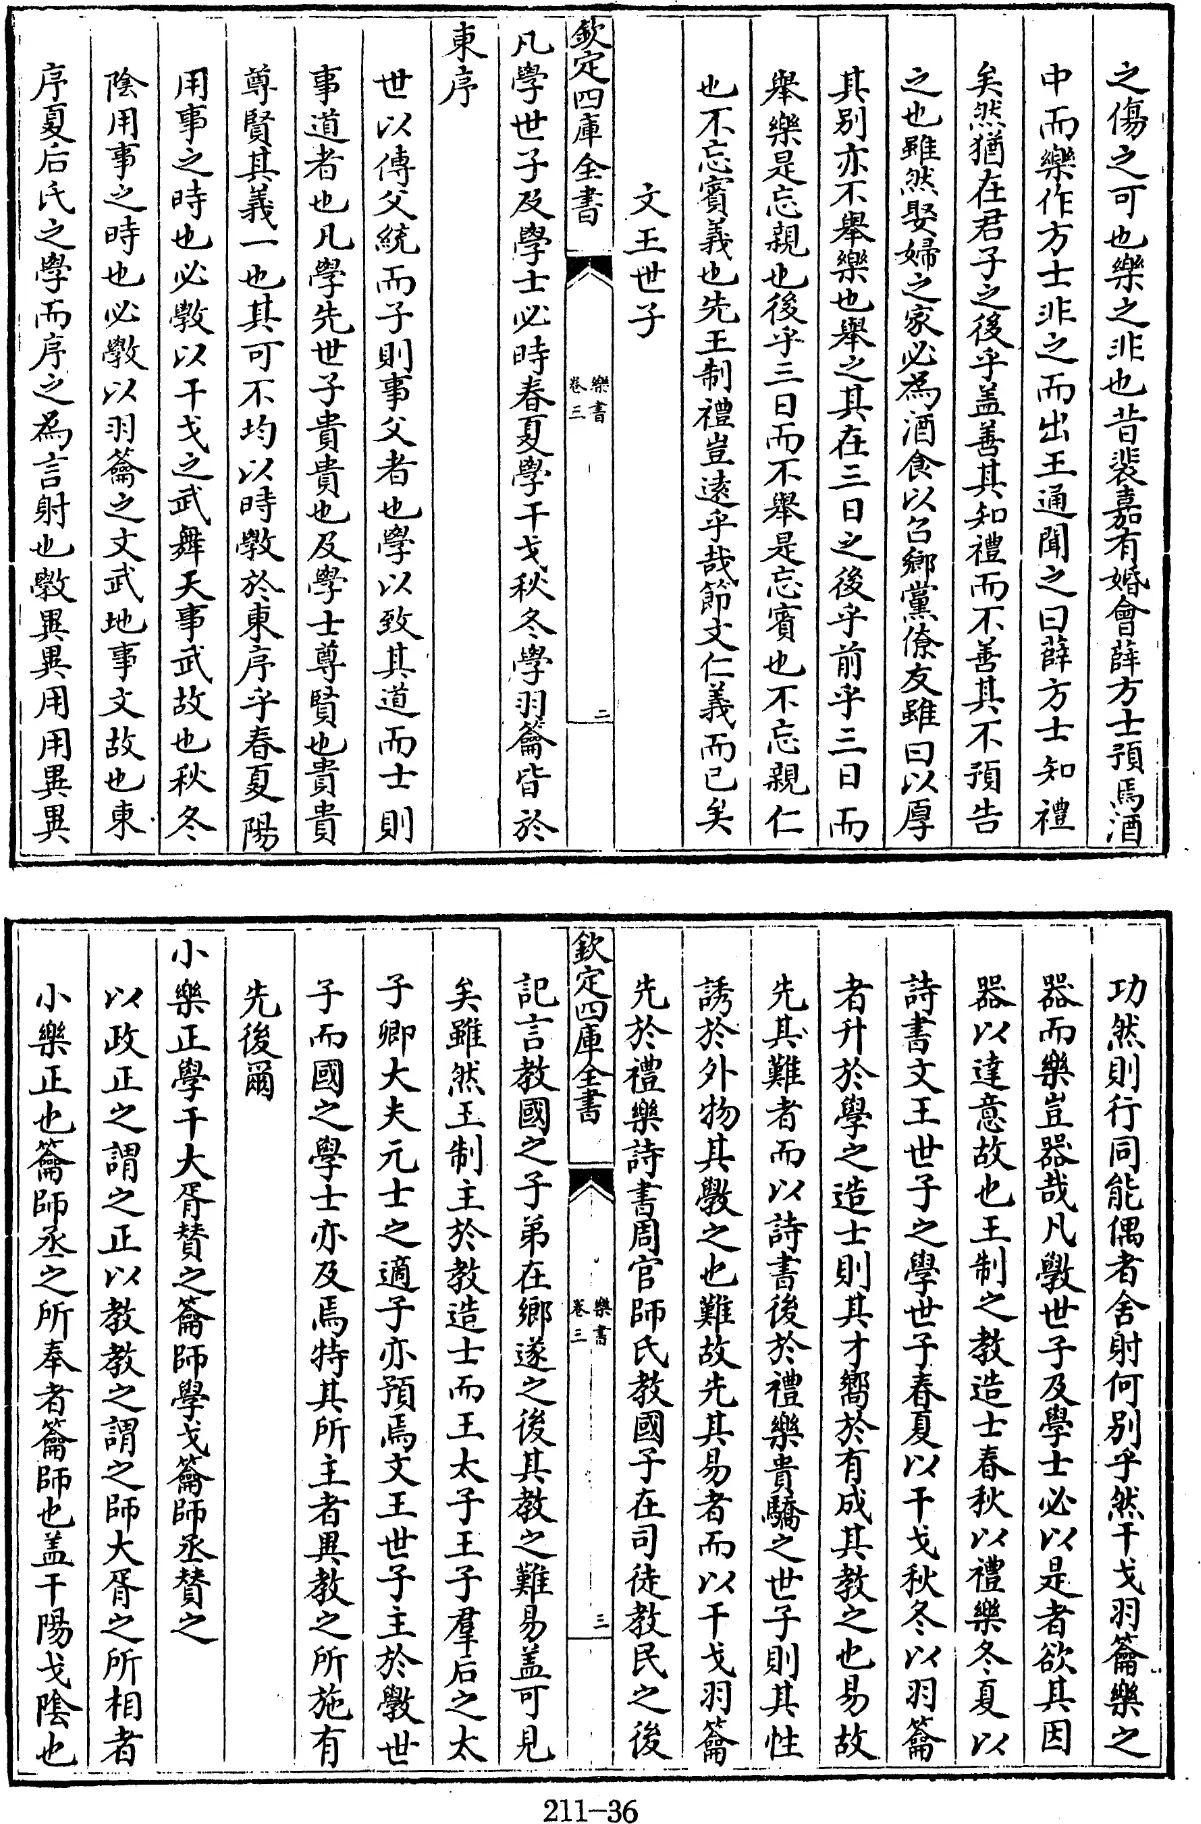 之傷之可也樂之非也昔裴嘉有婚會薛方士預焉酒
中而樂作方士非之而出王通聞之曰薛方士知禮
矣然猶在君子之後乎盖善其知禮而不善其不預告
之也雖然娶婦之家必為酒食以召鄉黨僚友雖曰以厚
其别亦不舉樂也舉之其在三日之後乎前乎三日而
舉樂是忘親也後乎三日而不舉是忘賓也不忘親仁
也不忘賓義也先王制禮豈遠乎哉節文仁義而已矣
文王世子
欽定四庫全書
樂書
卷三
二
凡學世子及學士必時春夏學干戈秋冬學羽籥皆於
東序
世以傳父統而子則事父者也學以致其道而士則
事道者也凡學先世子貴貴也及學士尊賢也貴貴
尊賢其義一也其可不均以時斆於東序乎春夏陽
用事之時也必斆以干戈之武舞天事武故也秋冬
陰用事之時也必斆以羽籥之文武地事文故也東
序夏后氏之學而序之為言射也斆異異用用異異
功然則行同能偶者舍射何别乎然干戈羽籥樂之
器而樂豈器哉凡斆世子及學士必以是者欲其因
器以達意故也王制之教造士春秋以禮樂冬夏以
詩書文王世子之學世子春夏以干戈秋冬以羽籥
者升於學之造士則其才嚮於有成其教之也易故
先其難者而以詩書後於禮樂貴驕之世子則其性
誘於外物其斆之也難故先其易者而以干戈羽籥
先於禮樂詩書周官師氏教國子在司徒教民之後
欽定四庫全書
樂書
卷三
三
記言教國之子弟在鄉遂之後其教之難易盖可見
矣雖然王制主於教造士而王太子王子羣后之太
子卿大夫元士之適子亦預焉文王世子主於斆世
子而國之學士亦及焉特其所主者異教之所施有
先後爾
小樂正學干大胥賛之籥師學戈籥師丞賛之
以政正之謂之正以教教之謂之師大胥之所相者
小樂正也籥師丞之所奉者籥師也盖干陽戈陰也
211-36